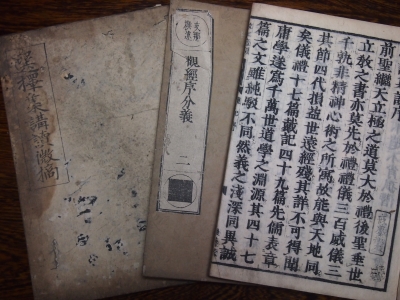 序
前聖繼天立極之道莫大於禮後聖垂世
立教之書亦莫先於禮禮儀三百威儀三
千孰非精神心術之所寓故能與天地同
其節四代損益世遠經殘其詳不可得聞
矣儀禮十七篇戴記四十九篇先儒表章
庸學遂爲千萬世道學之淵源其四十七
篇之文雖純駁不同然義之淺深同異誠
支那
撰述
觀經序分義
二
選擇集講